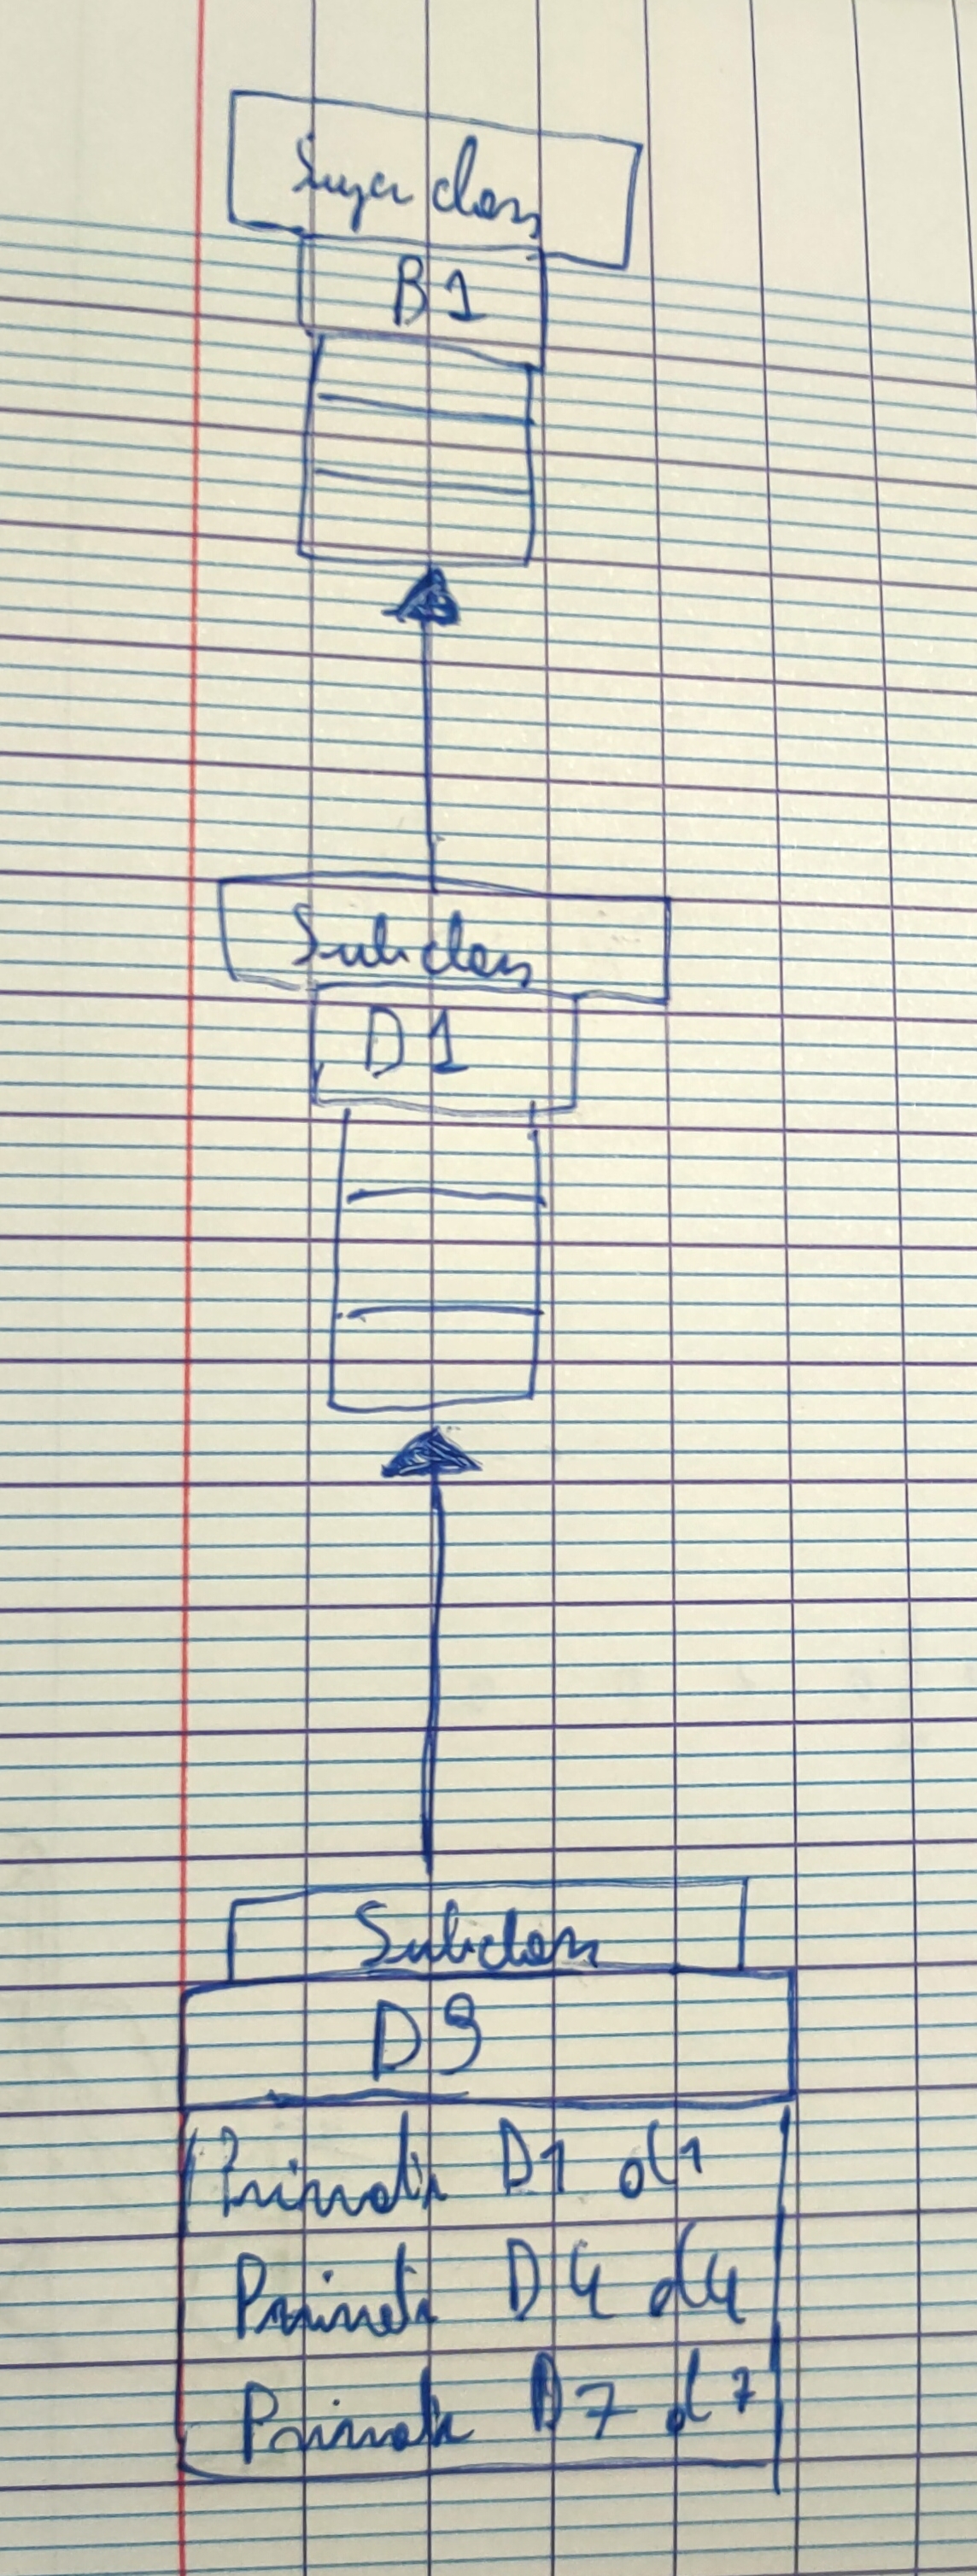 Super class
B1
Subclass
D1
Subclass
D9
Private D1 d1
Private D4 d4
Private D7 d7